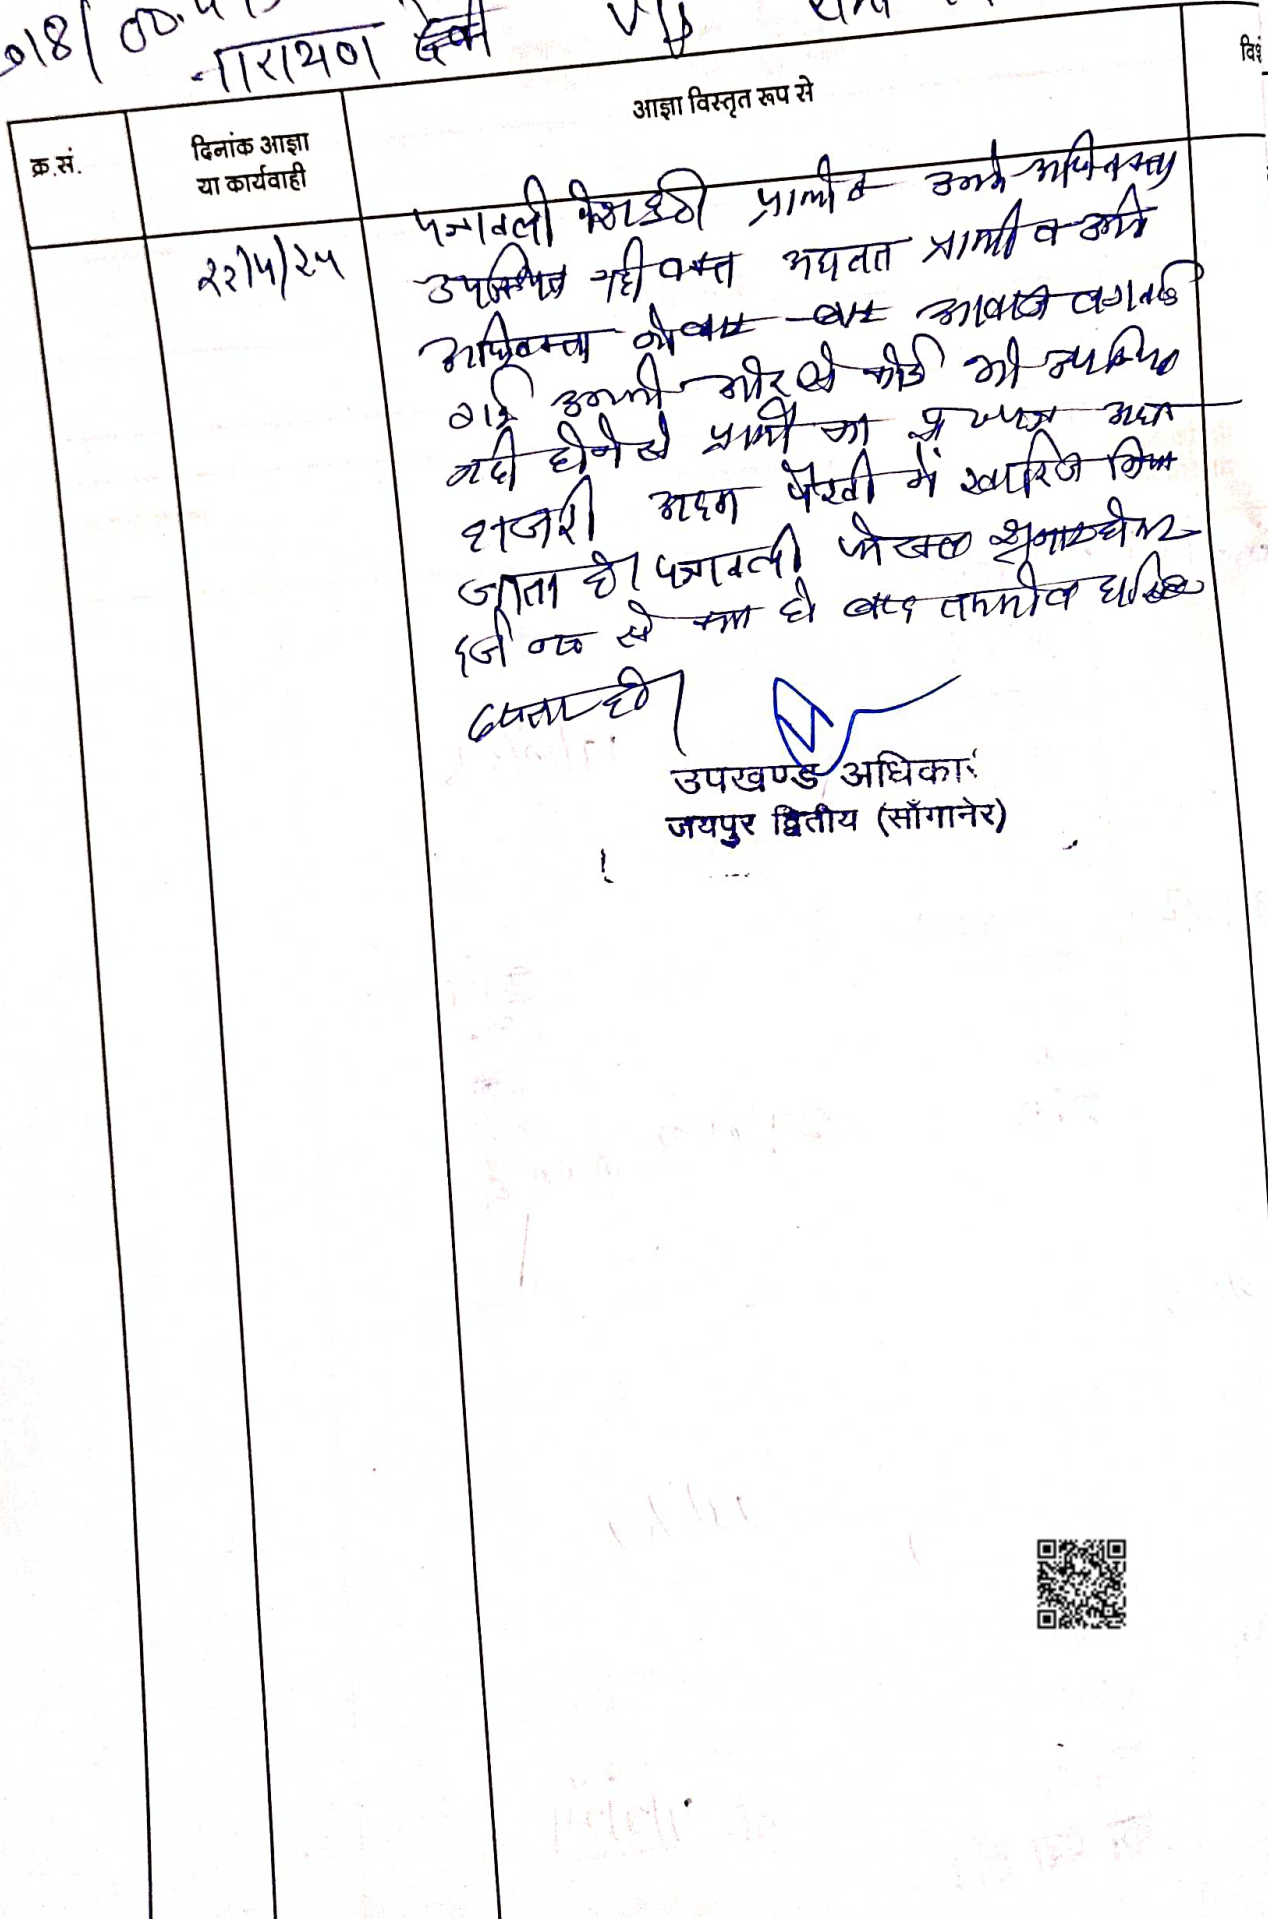 018/
नारायण देवी V/s
विशे
आज्ञा विस्तृत रूप से
क्र.सं.
दिनांक आज्ञा
या कार्यवाही
२२/५/२५
पत्रावली पेश हुई। प्रार्थी व उनके अधिवक्ता
उपस्थित नही वक्त प्रार्थी व उनके
अधिवक्ता को बार बार आवाज लगवाई
गई उनकी ओर से कोई भी उपस्थित
नही होने से प्रार्थी का प्रा पत्र अदम
हाजरी अदम पैरवी में खारिज किया
जाता है। पत्रावली फैसल शुमार होकर
दर्ज से कम हो बाद दाखिल
दफ्तर हो।
उपखण्ड अधिकारी
जयपुर द्वितीय (साँगानेर)